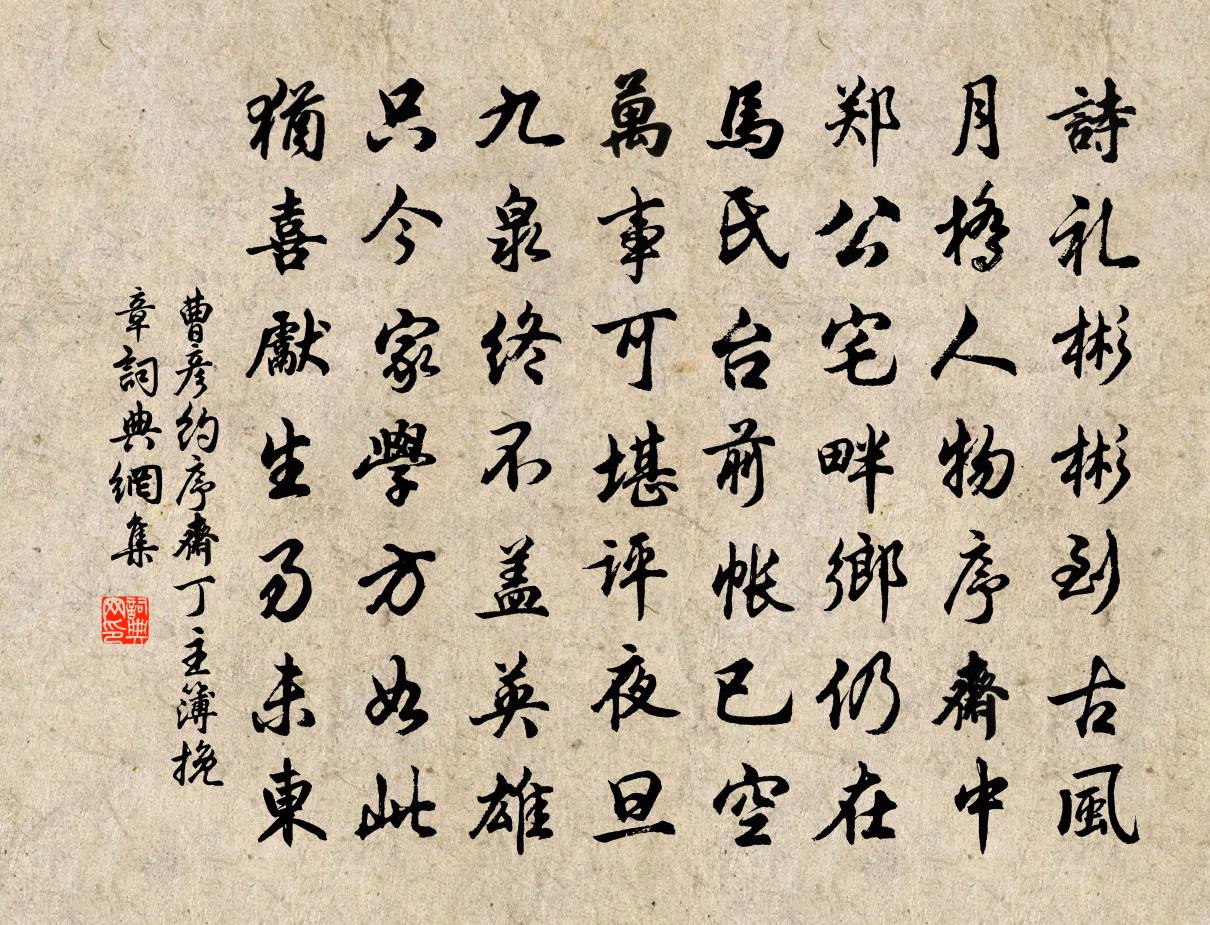 詩礼彬彬到古風
月橋人物序齋中
郑公宅畔鄉仍在
馬氏台前帐已空
萬事可堪评夜旦
九泉终不盖英雄
只今家學方如此
猶喜獻生易未東
曹彦约序齋丁主簿挽
章詞典網集
詞典网印